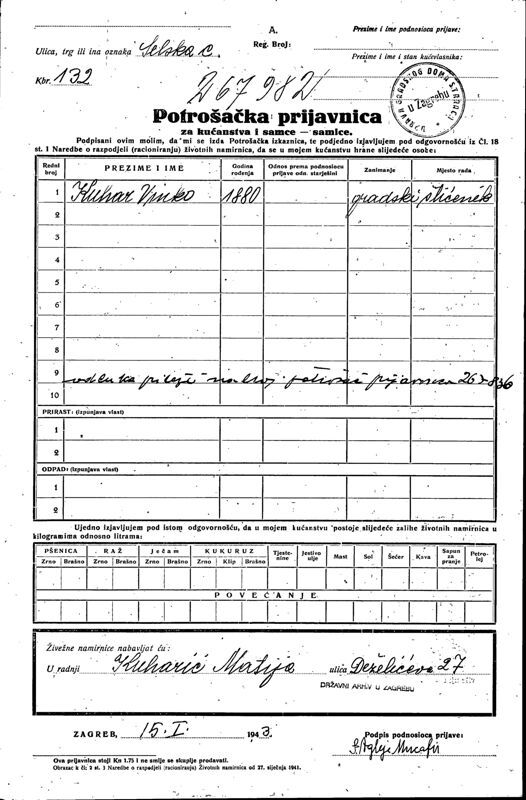 A.
Prezime i ime podnosioca prijave:
Ulica, trg ili ina oznaka Selska c.
Reg. Broj:
Prezime i ime i stan kućevlasnika:
Kbr. 132
267982
UPRAVA GRADSKOG DOMA STARACA
u Zagrebu
Potrošačka prijavnica
za kućanstva i samce — samice.
Podpisani ovim molim, da mi se izda Potrošačka izkaznica, te podjedno izjavljujem pod odgovornošću iz Čl. 18
st. 1 Naredbe o razpodjeli (racioniranju) životnih namirnica, da se u mojem kućanstvu hrane slijedeće osobe:
Redni broj PREZIME I IME Godina rodjenja Odnos prema podnosiocu prijave odn. starješini Zanimanje Mjesto rada
1 Kuhar Vinko 1880 gradski štićenik
2
3
4
5
6
7
8
9
10
na broj prijavnica 267836
PRIRAST: (izpunjava vlast)
1
2
ODPAD: (izpunjava vlast)
1
2
Ujedno izjavljujem pod istom odgovornošću, da u mojem kućanstvu postoje slijedeće zalihe životnih namirnica u
kilogramima odnosno litrama:
PŠENICA RAŽ Ječam KUKURUZ Tjestenine Jestivo ulje Mast Sol Šećer Kava Sapun za pranje Petrolej
Zrno Brašno Zrno Brašno Zrno Brašno Zrno Klip Brašno
POVEĆANJE
Živežne namirnice nabavljat ću:
U radnji Kuharić Matija ulica Deželićeva 27
DRŽAVNI ARHIV U ZAGREBU
ZAGREB, 15. I. 1943.
Podpis podnosioca prijave:
Ova prijavnica stoji Kn 1.75 i ne smije se skuplje prodavati.
Obrazac k čl. 2 st. 1 Naredbe o razpodjeli (racioniranju) Životnih namirnica od 27. siječnja 1941.